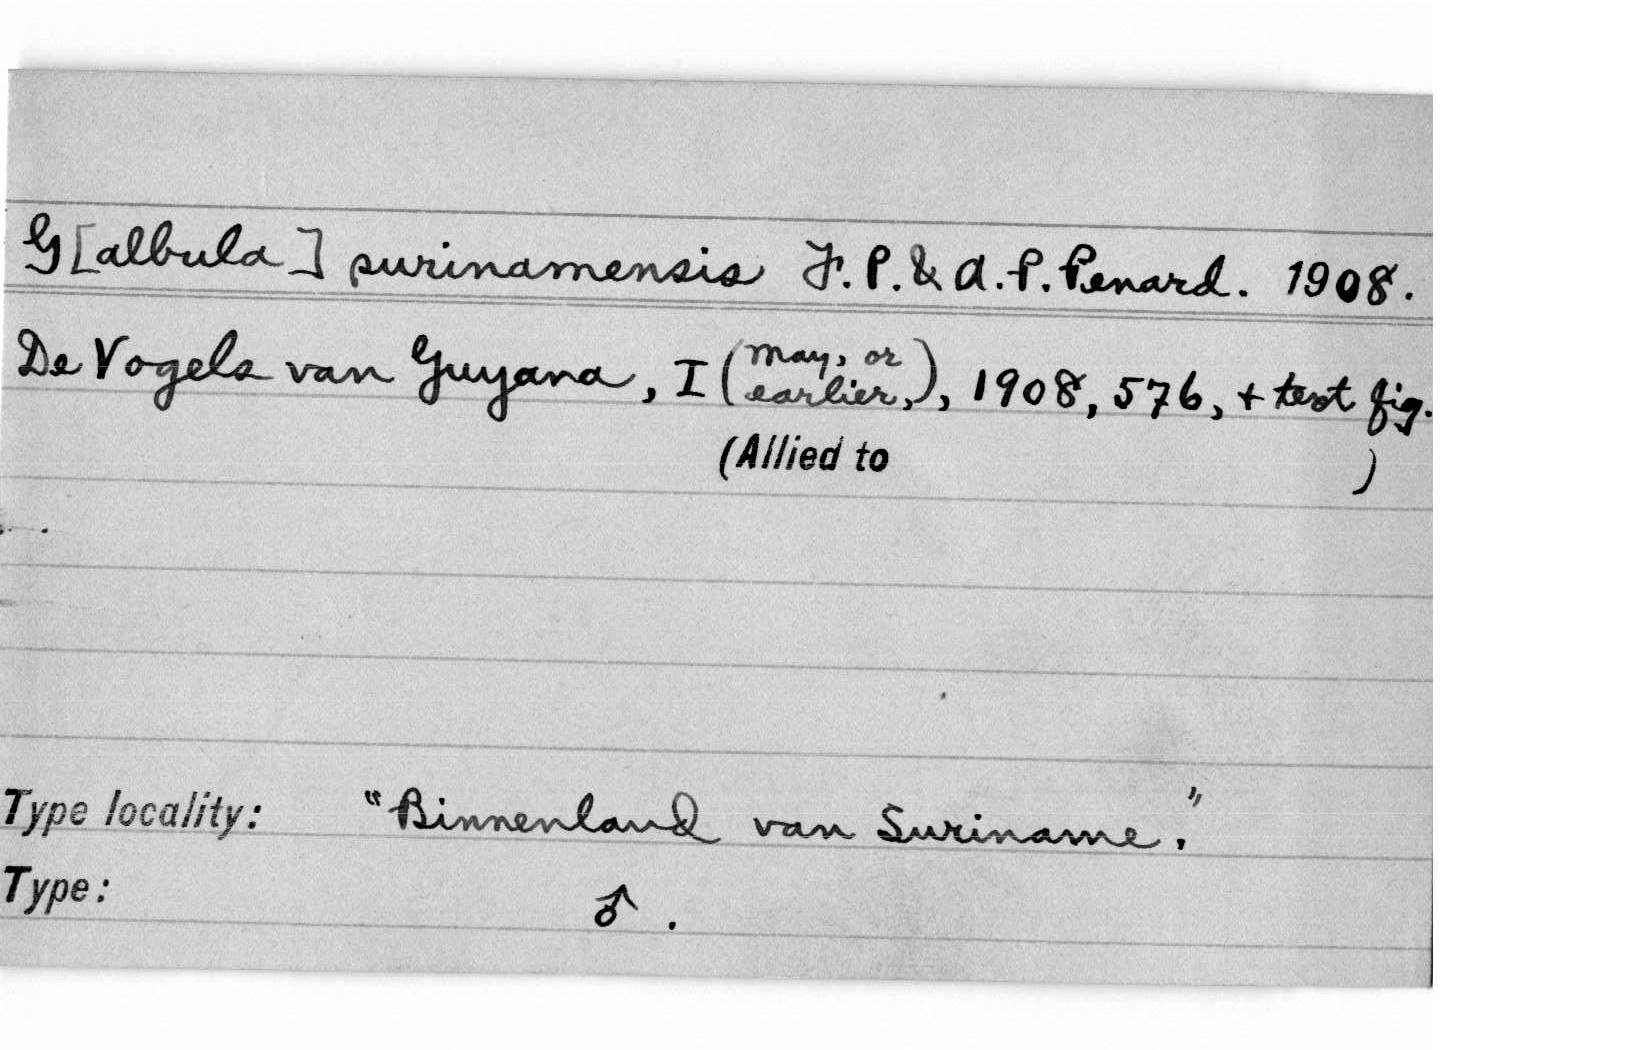 G[albula] surinamensis F. P. & A. P. Penard. 1908.
De Vogels van Guyana, I (May, or earlier,), 1908, 576, + text fig.
(Allied to )
Type locality: "Binnenland van Suriname."
Type: ♂.